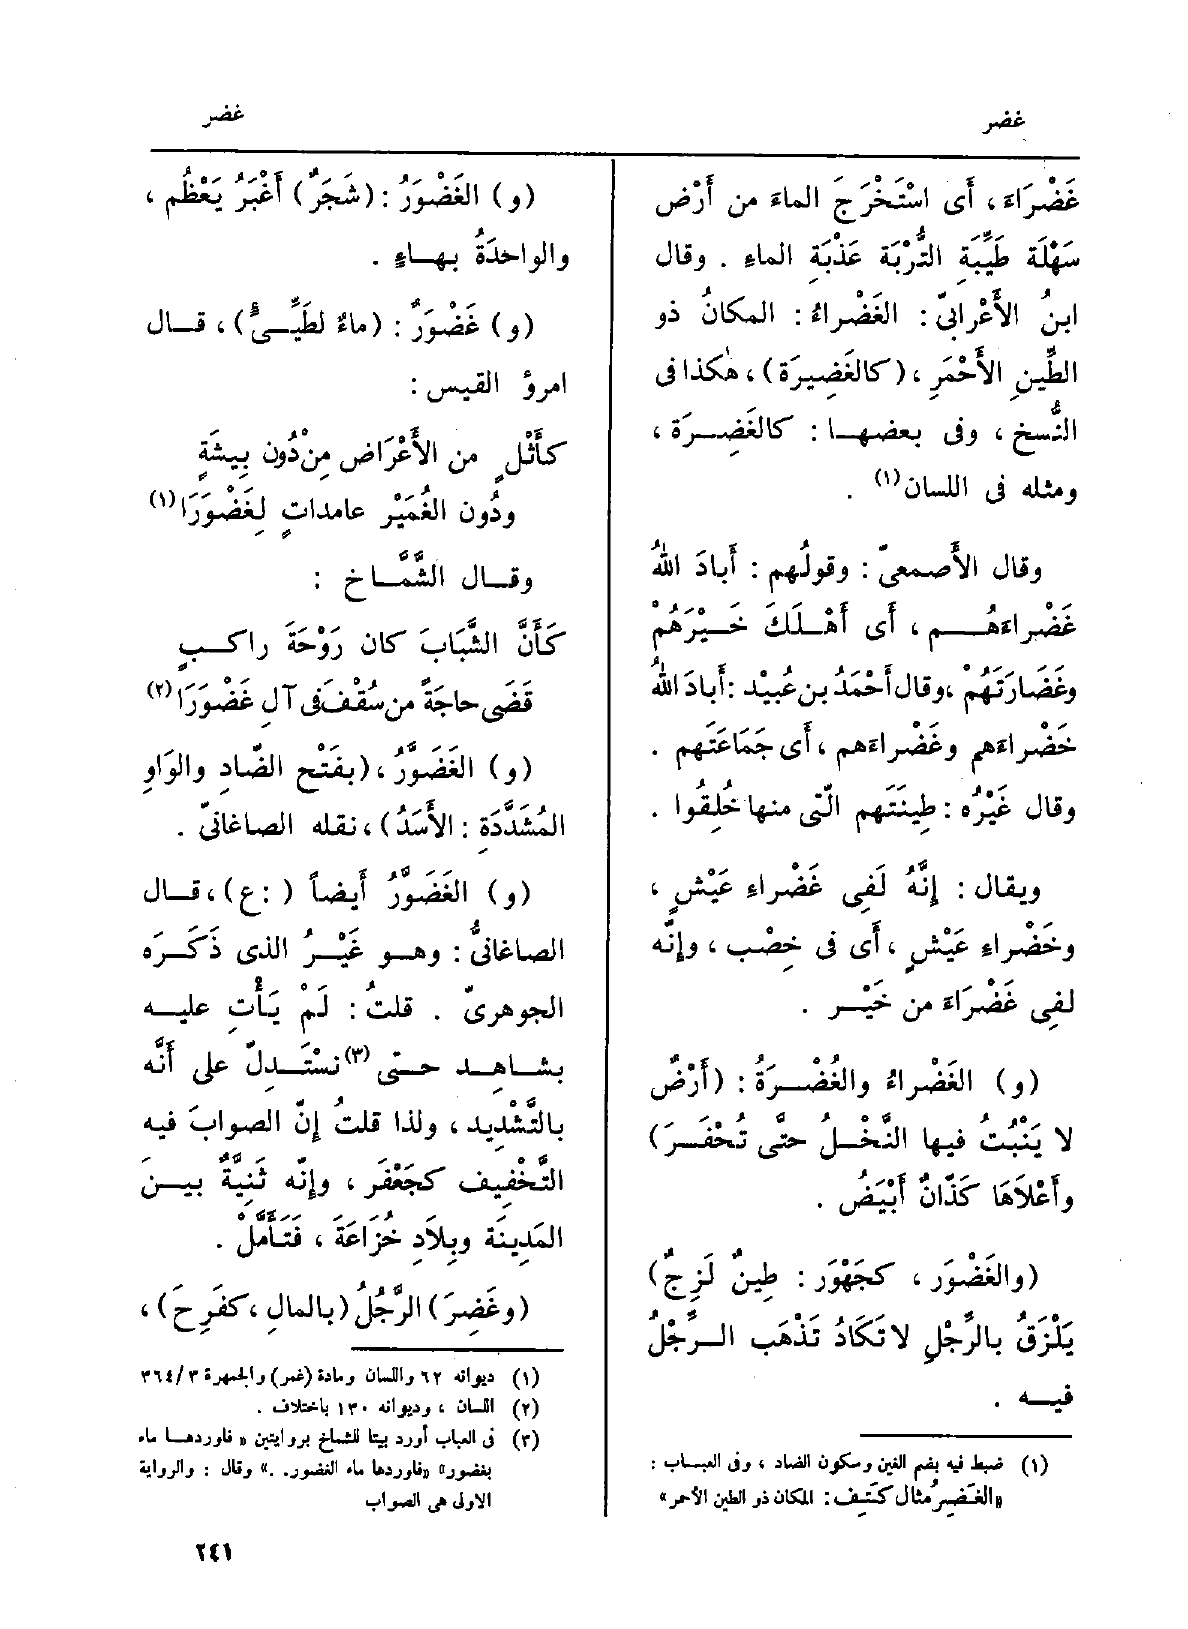 غضر
غضر
غَضْرَاءَ، أى اسْتَخْرَجَ الماءَ من أَرْض
سَهْلَة طَيِّبَةِ التُّرْبَة عَذْبَةِ الماءِ . وقال
ابنُ الأَعْرابىّ : الغَضْراءُ : المكانُ ذو
الطِّينِ الأَحْمَرِ ، (كالغَضِيرَة) ، هٰكذا فى
النُّسخ ، وفى بعضهـا : كالغَضِـرَة ،
ومثله فى اللسان(١) .
وقال الأَصمعىّ : وقولُهم : أَبادَ اللهُ
غَضْراءَهُـم ، أَى أَهْـلَكَ خَـيْرَهُمْ
وغَضارَتَهُمْ ،وقال أَحْمَدُ بن عُبيْد :أَبادَ اللهُ
خَضْراءَهم وغَضْراءَهم ، أَى جَمَاعَتَهم .
وقال غَيْرُه : طِينَتَهم الَّتى منها خُلِقُوا .
ويقال : إِنَّهُ لَفِى غَضْراءِ عَيْشٍ ،
وخَضْراءِ عَيْشٍ ، أَى فى خِصْب ، وإِنَّه
لفِى غَضْرَاءَ من خَيْـر .
(و) الغَضْراءُ والغُضْـرَةُ : (أَرْضٌ
لا يَنْبُتُ فيها النَّخْـلُ حتَّى تُحْفَـرَ)
وأَعْلاَهَا كَذَّانٌ أَبْيَضُ .
(والغَضْوَر ، كجَهْوَر : طِينٌ لَزِجٌ)
يَلْزَقُ بالرِّجْلِ لاتَكَادُ تَذْهَب الـرِّجْلُ
فيـه .
(١) ضبط فيه بضم الغين وسكون الضاد ، وفى العبـاب :
«الغَـضِرُ مثال كَتِـف : المكان ذو الطين الأحمر»
(و) الغَضْوَرُ : (شَجَرٌ) أَغْبَرُ يَعْظُم ،
والواحِدَةُ بهـاءٍ .
(و) غَضْوَرٌ : (ماءٌ لطَيِّـئٍ) ، قـال
امرؤ القيس :
كأَثْلٍ من الأَعْرَاض مِنْ دُون بِيشةٍ
ودُون الغُمَيْرِ عامداتٍ لِغَضْوَرَا(١)
وقـال الشَّمَّـاخ :
كَأَنَّ الشَّبَابَ كان رَوْحَةَ راكـبٍ
قَضَى حاجَةً من سُقْفَ فى آلِ غَضْوَرَا(٢)
(و) الغَضَوَّرُ ، (بفَتْح الضّادِ والوَاوِ
المُشَدَّدَةِ : الأَسَدُ) ، نقله الصاغانىّ .
(و) الغَضَوَّرُ أَيضاً ( : ع) ، قـال
الصاغانىُّ : وهـو غَيْـرُ الذى ذَكَـرَه
الجوهرىّ . قلتُ : لَمْ يَأْتِ عليـه
بشـاهِـد حـتى (٣)نَسْتَـدِلّ على أَنَّه
بالتَّشْدِيد ، ولذا قلتُ إِنّ الصوابَ فيه
التَّخْفِيف كجَعْفَر ، وإِنّه ثَنِيَّةٌ بيـن
المَدِينَة وبِلاَدِ خُزَاعَةَ ، فَتَأَمَّلْ .
(وغَضِرَ) الرَّجُلُ (بالمَالِ ، كفَرِحَ) ،
(١) ديوانه ٦٢ واللسان ومادة (غمر) والجمهرة ٣٦٤/٣
(٢) اللسان ، وديوانه ١٣٠ باختلاف .
(٣) فى العباب أورد بيتا للشماخ بروايتين « فأوردهـا ماء
بغضور» «فأوردها ماء الغضور. .» وقال : والرواية
الاولى هى الصواب
٢٤١